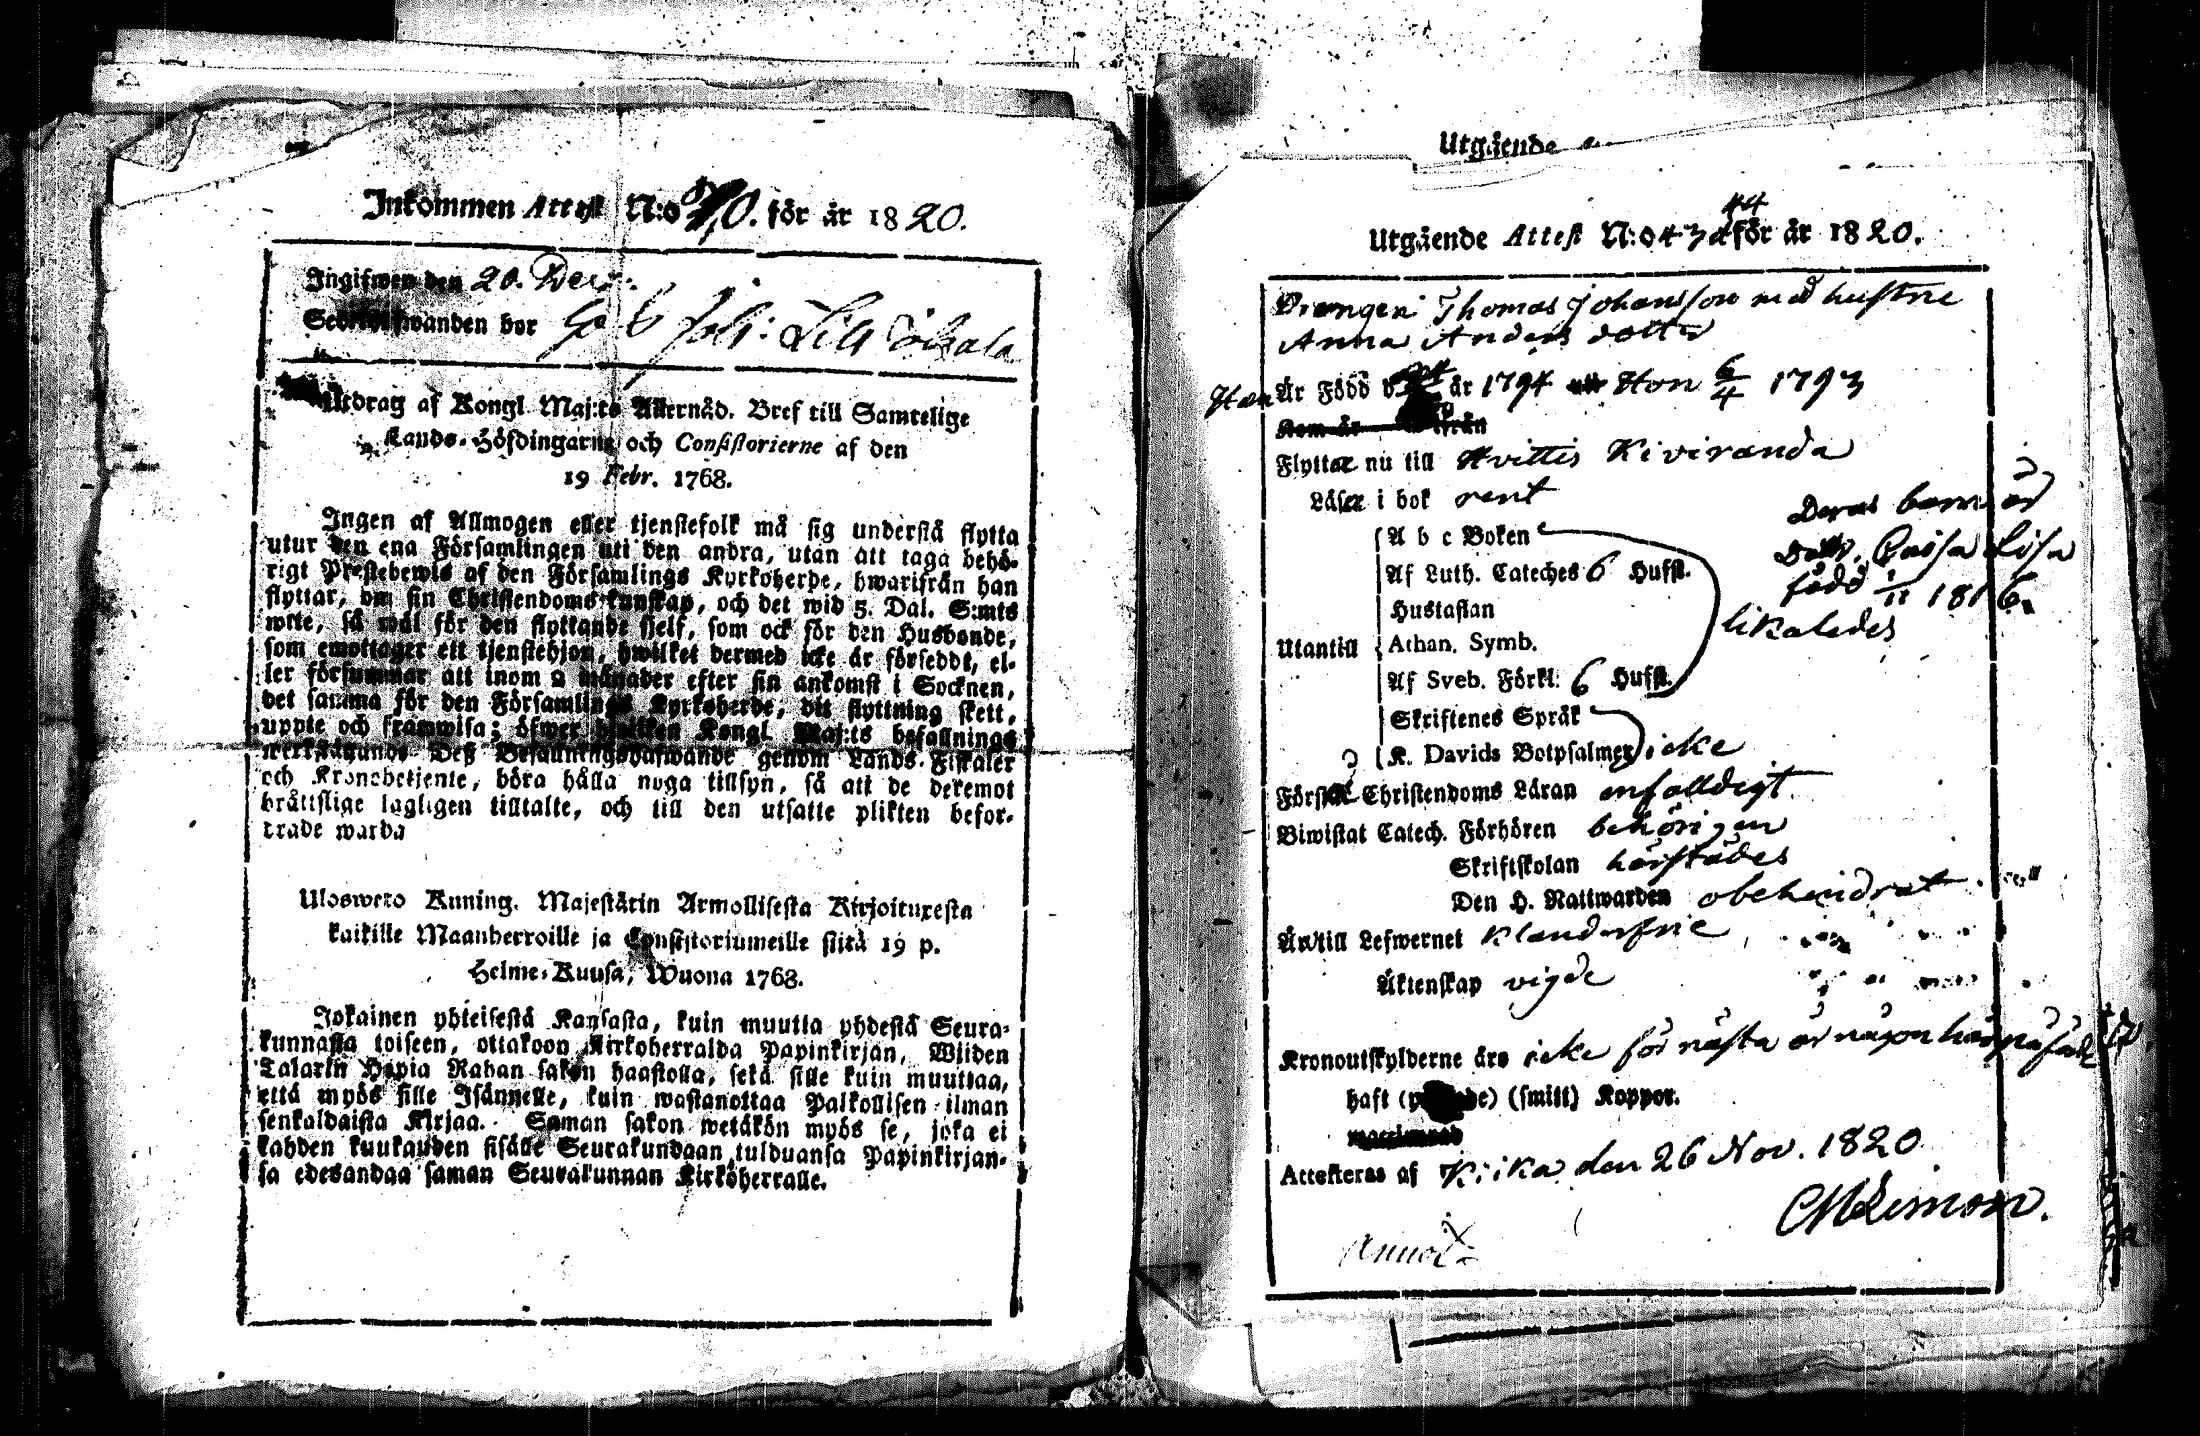 Inkommen Attest N:o 70. för år 1820.
Ingifwen den 20. Decr:
bor Joh: Lill
Utdrag af Kongl. Maj:ts Allernåd. Bref till Samtelige
Lands-Höfdingarne och Consistorierne af den
19 Febr. 1768.
Ingen af Allmogen eller tjenstefolk må sig understå flytta
utur den ena Församlingen uti den andra, utan att taga behö-
rigt Prestebewis af den Församlings Kyrkoherde, hwarifrån han
flyttar, om sin Christendoms-kunskap, och det wid 5. Dal. S:mts
wite, så wäl för den flyttande sjelf, som ock för den Husbonde,
som emottager ett tjenstehjon, hwilket dermed icke är försedt, el-
ler försummar att inom 2 månader efter sin ankomst i Socknen,
det samma för den Församlings Kyrkoherde, dit flyttning skett,
uppte och framwisa; öfwer hwilken Kongl. Maj:ts befallnings
werkställande Deß Befallningshafwande genom Lands-Fiskaler
och Kronobetjente, böra hålla noga tillsyn, så att de deremot
bråttslige lagligen tilltalte, och till den utsatte plikten befor-
drade warda
Ulosweto Kuning. Majestätin Armollisesta Kirjoituxesta
kaikille Maanherroille ja Consistoriumeille siitä 19 p.
Helme-Kuusa, Wuona 1768.
Jokainen yhteisestä Kansasta, kuin muutta yhdestä Seura-
kunnasta toiseen, ottakoon Kirkoherralda Papinkirjan, Wiiden
Talarin Hopia Rahan sakon haastolla, sekä sille kuin muuttaa,
että myös sille Isännelle, kuin wastanottaa Palkollisen ilman
senkaldaista Kirjaa. Saman sakon wetäkön myös se, joka ei
kahden kuukauden sisälle Seurakundaan tulduansa Papinkirjan-
sa edesandaa saman Seurakunnan Kirköherralle.
Utgående
44
Utgående Attest N:o 43 för år 1820.
Drengen Thomas Johansson med hustru
Anna Anders dotter
Han Är Född år 1794 Hon 6/4 1793
Kom år ifrån
Flyttar nu till Hvittis Kiviranda
Läser i bok rent
Deras barn är
A b c Boken
Dottr. Caisa Lisa
Af Luth. Cateches 6 Hufst.
född 1/11 1816.
Hustaflan
likaledes
Utantill Athan. Symb.
Af Sveb. Förkl. 6 Hufst.
Skriftenes Språk
K. Davids Botpsalmer icke
Förstår Christendoms Läran enfalldigt
Biwistat Catech. Förhören behörigen
Skriftskolan härstädes
Den H. Nattwarden obehindrat
Är till Lefwernet klanderfrie
Äktenskap vigde
Kronoutskylderne äro icke för nästa år någon här påförde
haft (smitt) Koppor.
Attesteras af Kiika den 26 Nov. 1820
Annot: